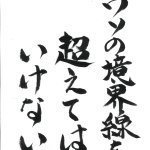 ウソの境界線を
超えては
いけない